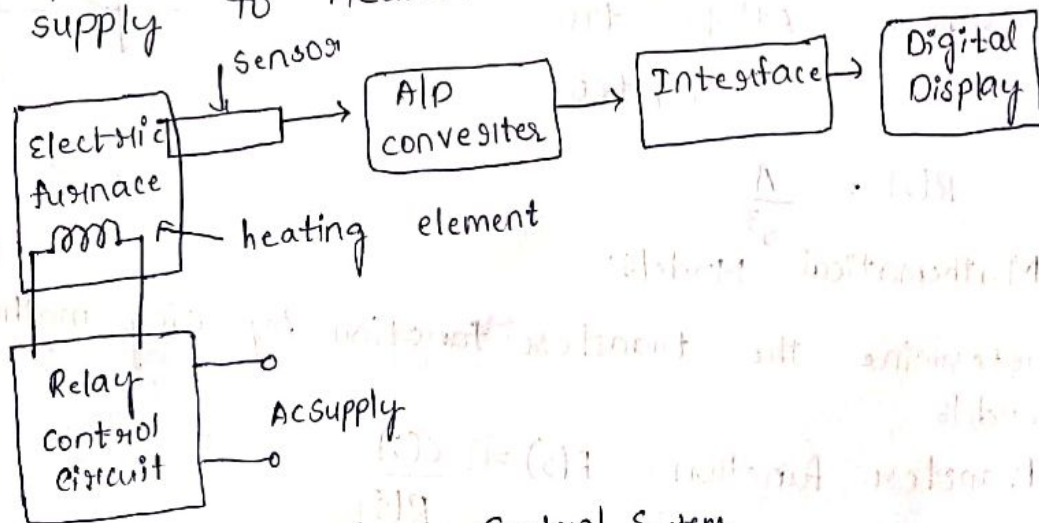 supply to
sensor
Electric
furnace
A/D
converter
Interface
Digital
Display
heating element
Relay
Control
Circuit
AC Supply
Control System